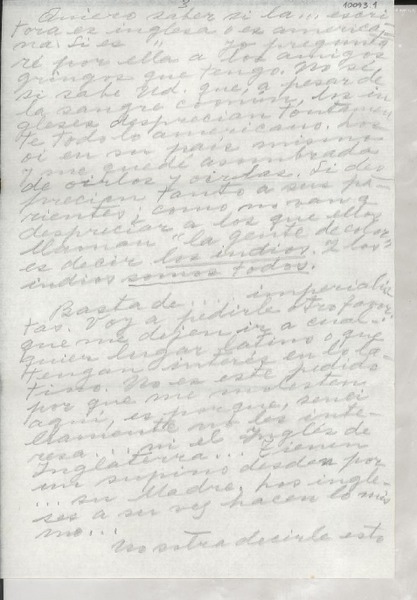 3
10093.1
Quiero saber si la... escri-
tora es inglesa o es america-
na. Si es " yo pregunta-
ré por ella a los amigos
gringos que tengo. No sé
si sabe Ud. que, a pesar de
la sangre común, los in-
gleses desprecian tontamen-
te todo lo americano. Los
oí en su país mismo
y me quedé asombrada
de oírlos y oírlas. Si des-
precian tanto a sus pa-
rientes, como no van a
despreciar a los que ellos
llaman "la gente de color
es decir los indios. Y los
indios somos todos.
Basta de... imperialis-
tas. Voy a pedirle otro favor:
que me dejen ir a cual-
quier lugar latino o que
tengan interés en lo la-
tino. No es este pedido
por que me molesten
aquí, es porque, senci-
llamente no les inte-
resa... ni el Inglés de
Inglaterra... Tienen
un supino desdén por
... su Madre. Los ingle-
ses a su vez hacen lo mis-
mo...
decirle esto